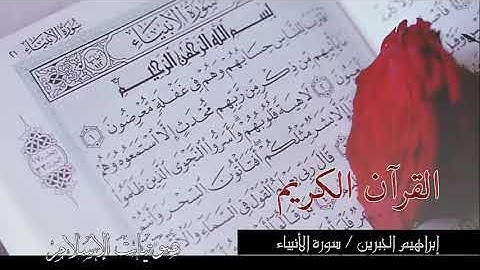 سورة الأنبياء
سورة الأنبياء
بسم الله الرحمن الرحيم
للناس حسابهم وهم في غفلة معرضون
من ذكر من ربهم محدث إلا استمعوه وهم
لاهية قلوبهم وأسروا النجوى الذين ظلموا
بشر مثلكم أفتأتون السحر
قال ربي يعلم القول في السماء
القرآن الكريم
إبراهيم الجبرين / سورة الأنبياء
صوتيات الإسلام